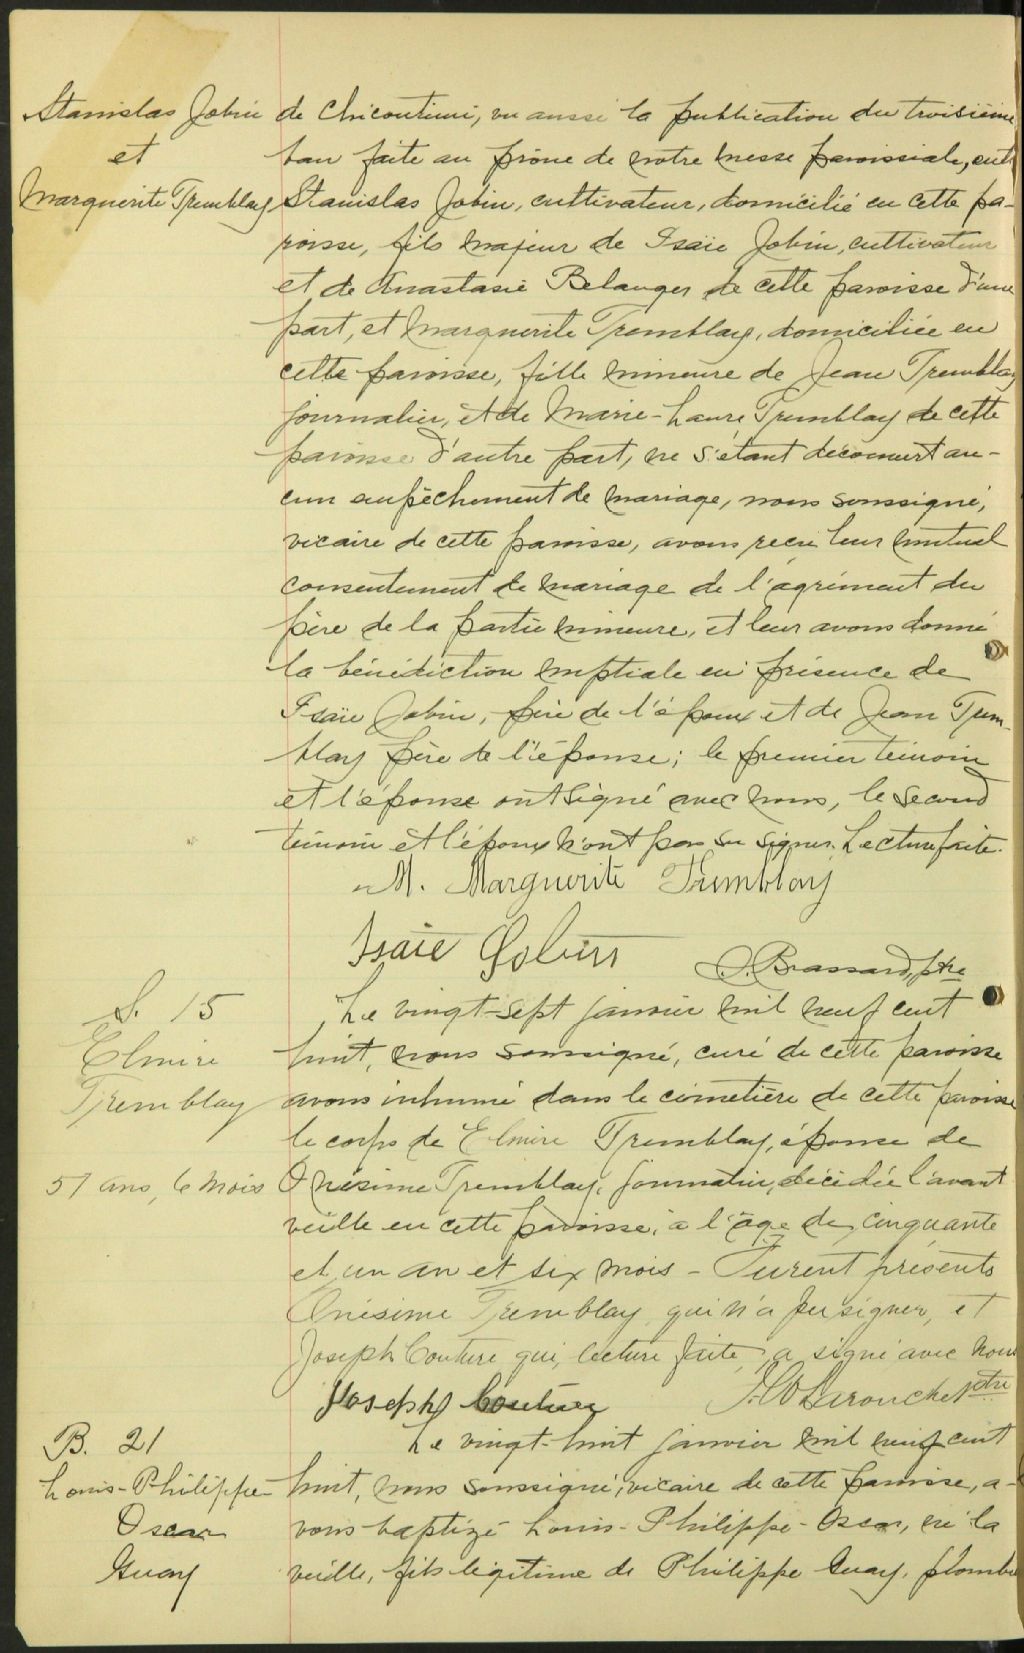 Stanislas Jobin
et
Marguerite Tremblay
de Chicoutimi, vu aussi la publication du troisième
ban faite au prône de notre messe paroissiale, entre
Stanislas Jobin, cultivateur, domicilié en cette pa-
roisse, fils majeur de Isaïe Jobin, cultivateur
et de Anastasie Belanger de cette paroisse d'une
part, et Marguerite Tremblay, domiciliée en
cette paroisse, fille mineure de Jean Tremblay
journalier, et de Marie-Laure Tremblay de cette
paroisse d'autre part, ne s'étant découvert au-
cun empêchement de mariage, nous soussigné,
vicaire de cette paroisse, avons reçu leur mutuel
consentement de mariage de l'agrément du
père de la partie mineure, et leur avons donné
la bénédiction nuptiale en présence de
Isaïe Jobin, père de l'époux et de Jean Trem-
blay père de l'épouse; le premier témoin
et l'épouse ont signé avec nous, le second
témoin et l'époux n'ont pas su signer. Lecture faite.
M. Marguerite Tremblay
Isaie Jobin
Brassard, ptre
S. 15
Elmire
Tremblay
51 ans, 6 mois
Le vingt-sept janvier mil neuf cent
huit, nous soussigné, curé de cette paroisse
avons inhumé dans le cimetière de cette paroisse
le corps de Elmire Tremblay, épouse de
Onésime Tremblay, journalier, décédée l'avant
veille en cette paroisse, à l'âge de cinquante
et un an et six mois - Furent présents
Onésime Tremblay qui n'a pu signer, et
Joseph Couture qui, lecture faite, a signé avec nous
Joseph Couture
Larouche Ptre
B. 21
Louis-Philippe-
Oscar
Guay
Le vingt-huit janvier mil neuf cent
huit, nous soussigné, vicaire de cette paroisse, a-
vons baptizé Louis-Philippe-Oscar, né la
veille, fils légitime de Philippe Guay, plombier